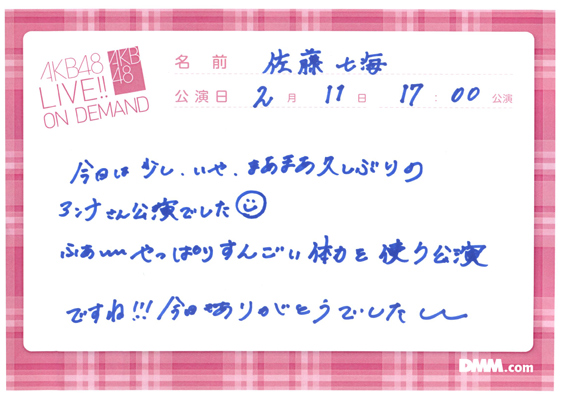 AKB48
LIVE!!
ON DEMAND
AKB
48
名前 佐藤七海
公演日 2月 11日 17:00 公演
今日は少し、いや、まあまあ久しぶりの
アンナさん公演でした
ふぁ〰やっぱりすんごい体力を使う公演
ですね!!!今日もありがとうでした〰
DMM.com